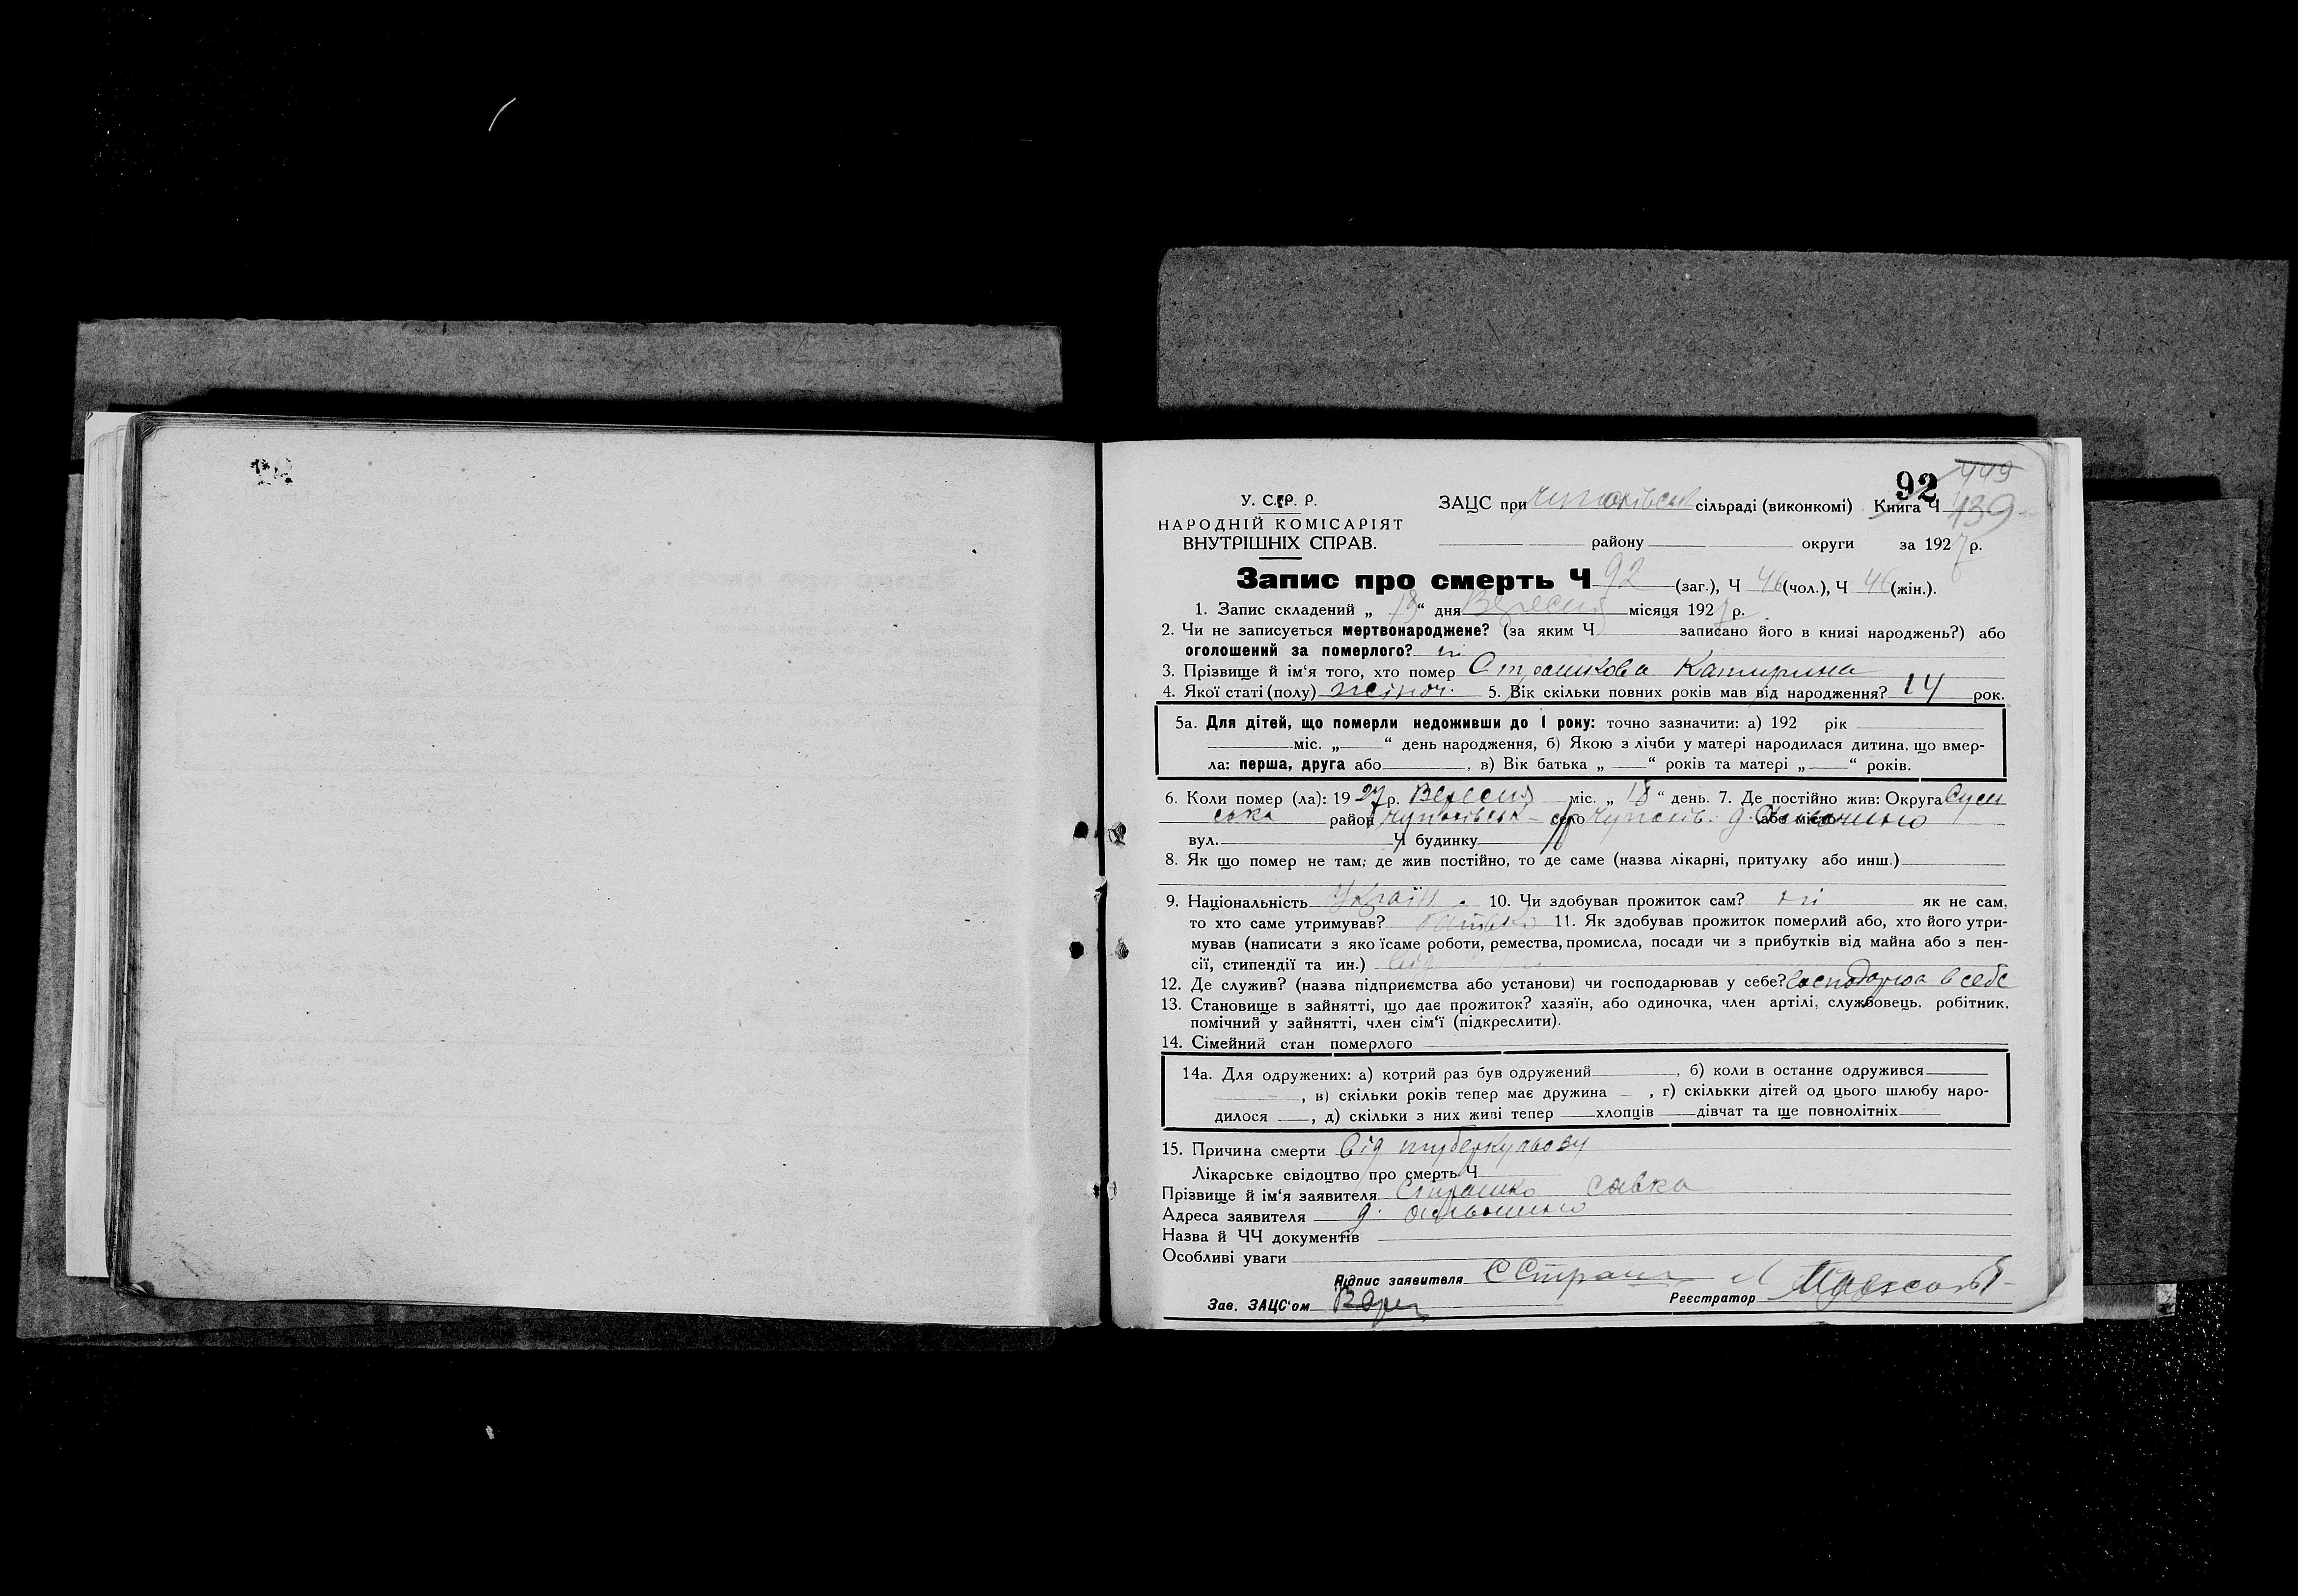 92 449
У. С.Р.Р. Р. ЗАЦС при сільраді (виконкомі) Книга Ч 139
НАРОДНІЙ КОМІСАРІЯТ
ВНУТРІШНІХ СПРАВ. району округи за 1927 р.
Запис про смерть Ч 92 (заг.), Ч 46 (чол.), Ч 46 (жін.).
1. Запис складений „ 18 “ дня Вересня місяця 1927 р.
2. Чи не записується мертвонароджене? (за яким Ч записано його в книзі народжень?) або
оголошений за померлого? ні
3. Прізвище й ім‘я того, хто помер Страшкова Катирина
4. Якої статі (полу) жіноч. 5. Вік скільки повних років мав від народження? 14 рок.
5а. Для дітей, що померли недоживши до 1 року: точно зазначити: а) 192 рік
міс. „ “ день народження, б) Якою з лічби у матері народилася дитина, що вмер-
ла: перша, друга або , в) Вік батька „ “ років та матері „ “ років.
6. Коли помер (ла): 1927 р. Вересня міс. „ 18 “ день. 7. Де постійно жив: Округа Сум
ська район село або місто
вул. Ч будинку
8. Як що помер не там, де жив постійно, то де саме (назва лікарні, притулку або инш.)
9. Національність Україн. 10. Чи здобував прожиток сам? ні як не сам,
то хто саме утримував? батько 11. Як здобував прожиток померлий або, хто його утри-
мував (написати з яко їсаме роботи, ремества, промисла, посади чи з прибутків від майна або з пен-
сії, стипендії та ин.)
12. Де служив? (назва підприємства або установи) чи господарював у себе? в себе
13. Становище в зайнятті, що дає прожиток? хазяїн, або одиночка, член артілі, службовець, робітник,
помічний у зайнятті, член сім‘ї (підкреслити).
14. Сімейний стан померлого
14а. Для одружених: а) котрий раз був одружений , б) коли в останнє одружився
, в) скільки років тепер має дружина , г) скількки дітей од цього шлюбу наро-
дилося , д) скільки з них живі тепер хлопців дівчат та ще повнолітніх
15. Причина смерти від туберкульозу
Лікарське свідоцтво про смерть Ч
Прізвище й ім‘я заявителя Страшко Савка
Адреса заявителя
Назва й ЧЧ документів
Особливі уваги
Підпис заявителя С Страш
Зав. ЗАЦС‘ом Реєстратор